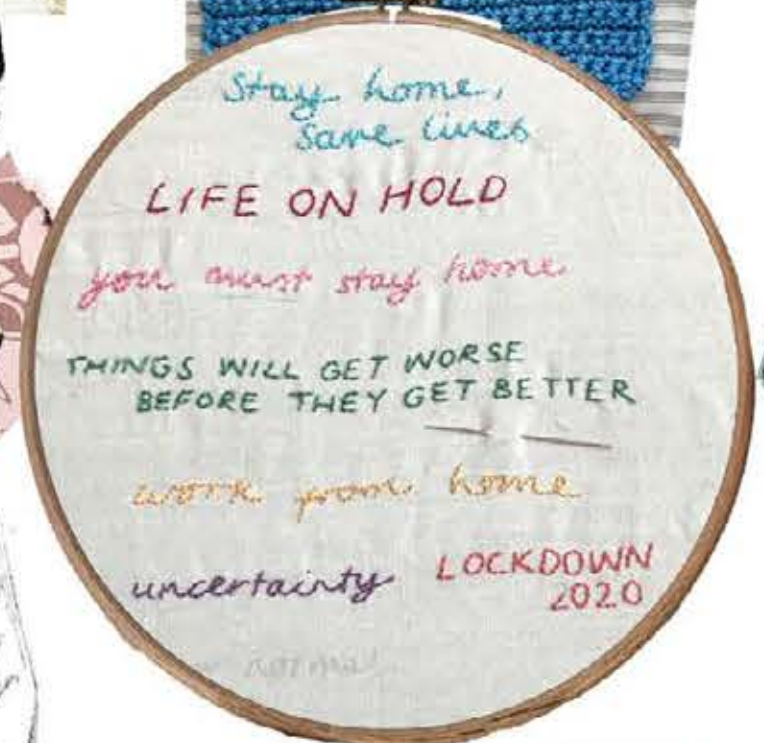 Stay home,
save lives
LIFE ON HOLD
you must stay home
THINGS WILL GET WORSE
BEFORE THEY GET BETTER
work from home
uncertainty
LOCKDOWN
2020
normal